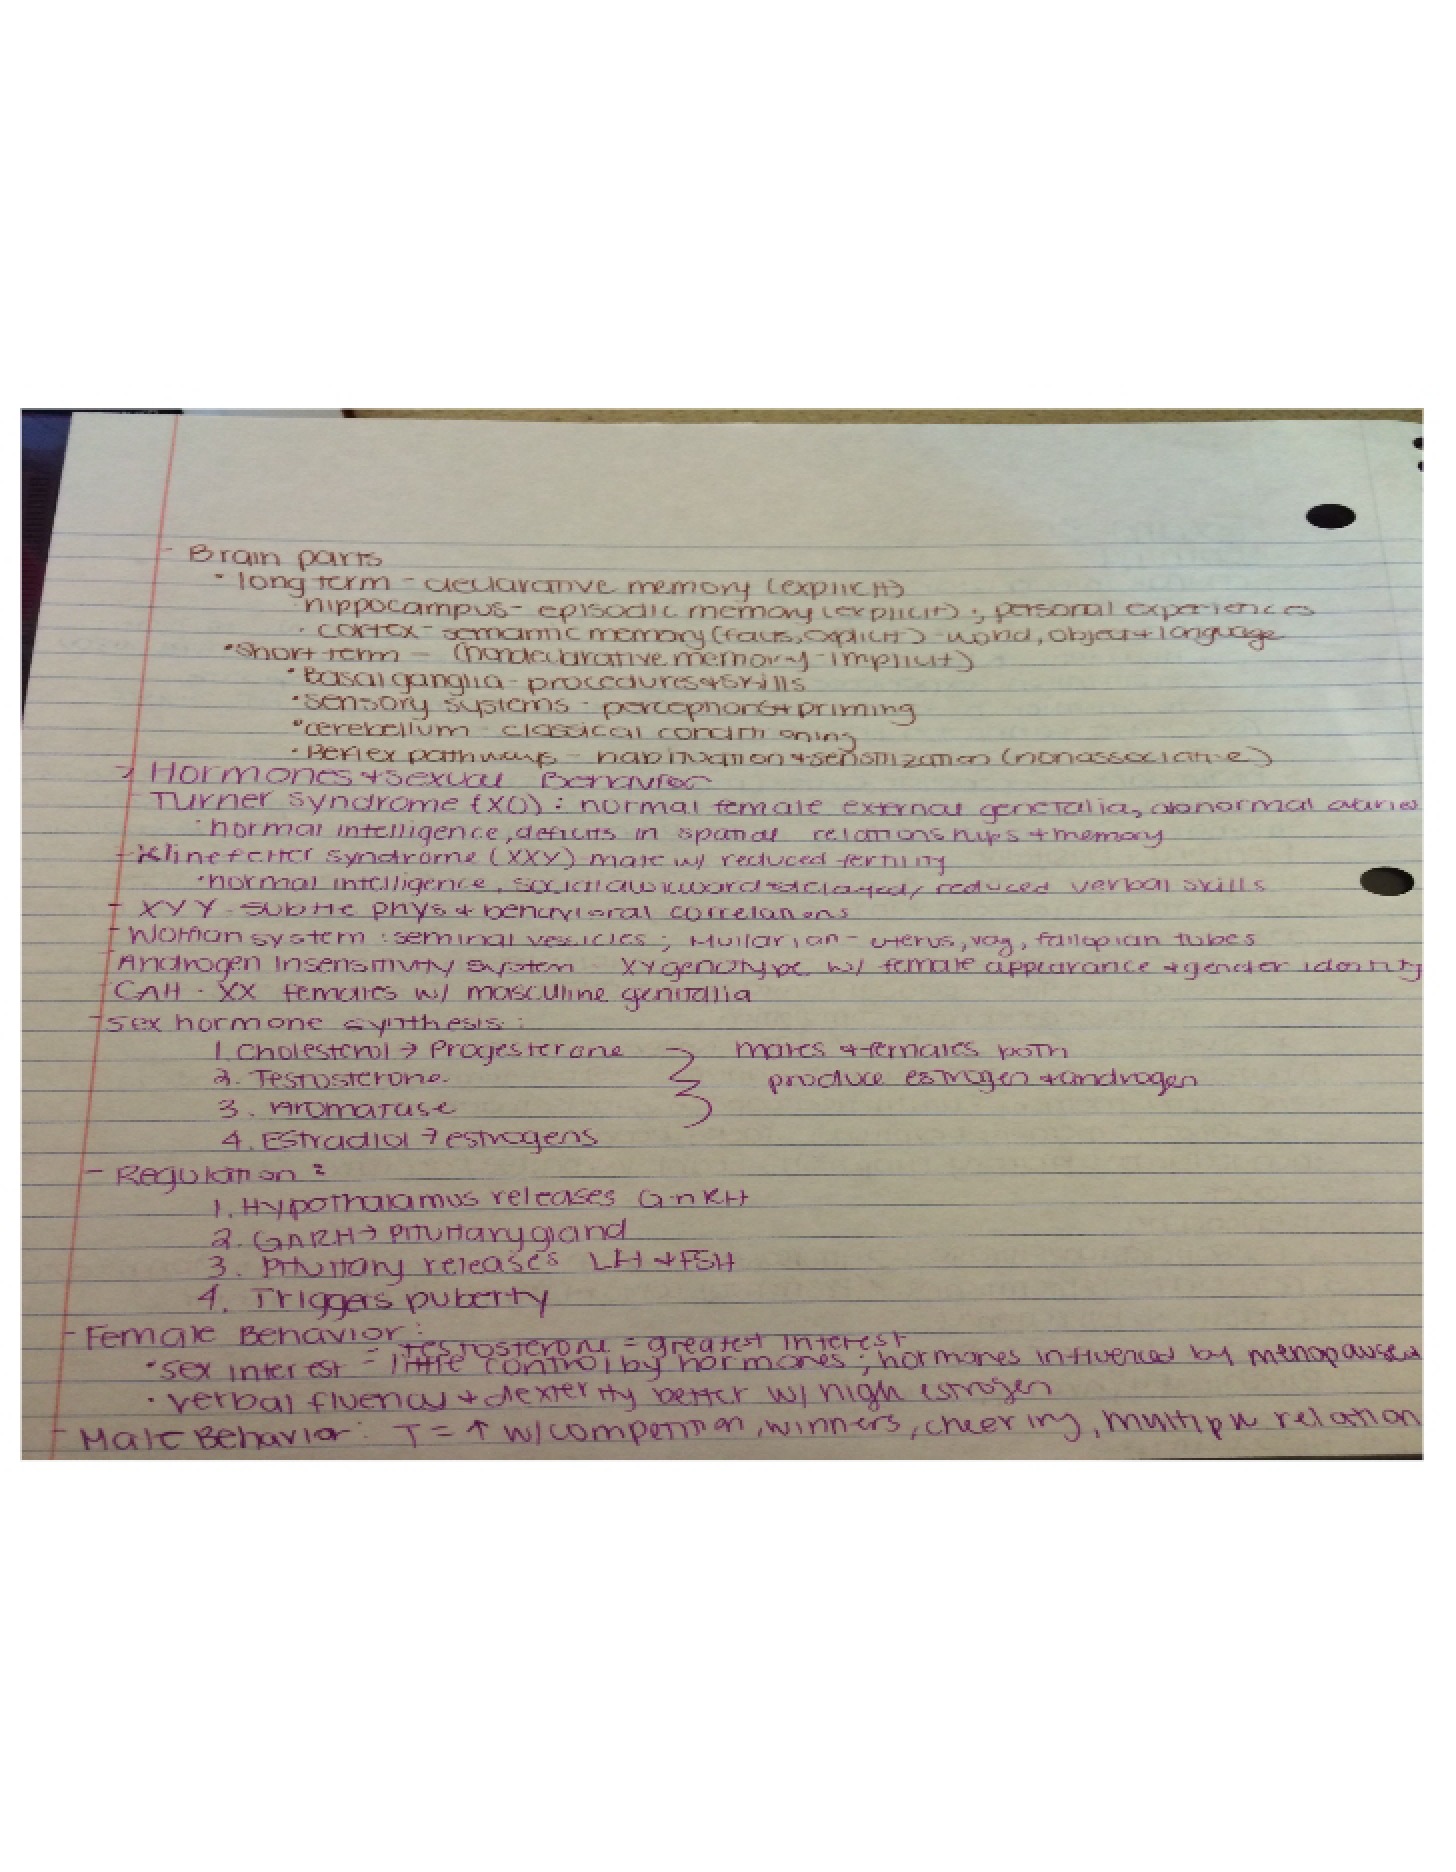 - Brain parts
• long term - declarative memory (explicit)
· hippocampus - episodic memory (explicit); personal experiences
· cortex - semantic memory (facts, explicit) - world, object + language
• Short term - (nondeclarative memory - implicit)
• Basal ganglia - procedures + skills
• sensory systems - perceptions + priming
• cerebellum - classical conditioning
• Reflex pathways - habituation + sensitization (nonassociative)
→ Hormones + sexual Behavior
Turner syndrome (XO): normal female external genetalia, abnormal
· normal intelligence, deficits in spatial relationships + memory
- Klinefelter syndrome (XXY) male w/ reduced fertility
• normal intelligence, social awkward + delayed/reduced verbal skills
- XYY - subtle phys + behavioral correlations
- Wolffian system: seminal vesicles; Mullarian - uterus, vag, fallopian tubes
- Androgen Insensitivity system - XY genotype w/ female appearance + gender identity
- CAH - XX females w/ masculine genitalia
- Sex hormone synthesis:
1. Cholesterol → Progesterone males + females both
2. Testosterone produce estrogen + androgen
3. Aromatase
4. Estradiol → estrogens
- Regulation:
1. Hypothalamus releases GnRH
2. GnRH → Pituitary gland
3. Pituitary releases LH + FSH
4. Triggers puberty
- Female Behavior:
Testosterone = greatest interest
• sex interest = little control by hormones; hormones influenced by menopause
• verbal fluency + dexterity better w/ high estrogen
- Male Behavior: T = ↑ w/ competition, winners, cheering, multiple relation